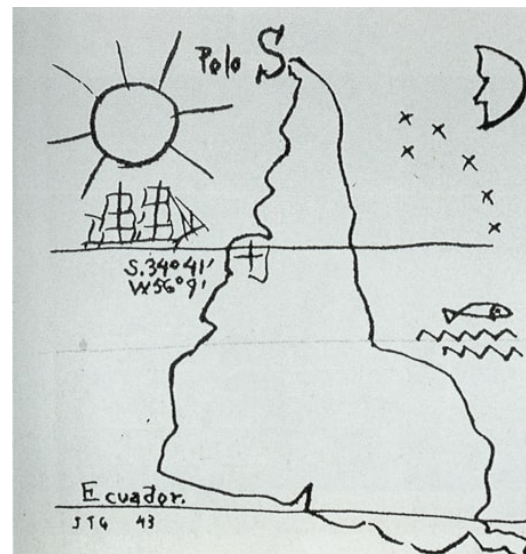 Polo S
S.34º41'
W56º9'
Ecuador.
JTG 43